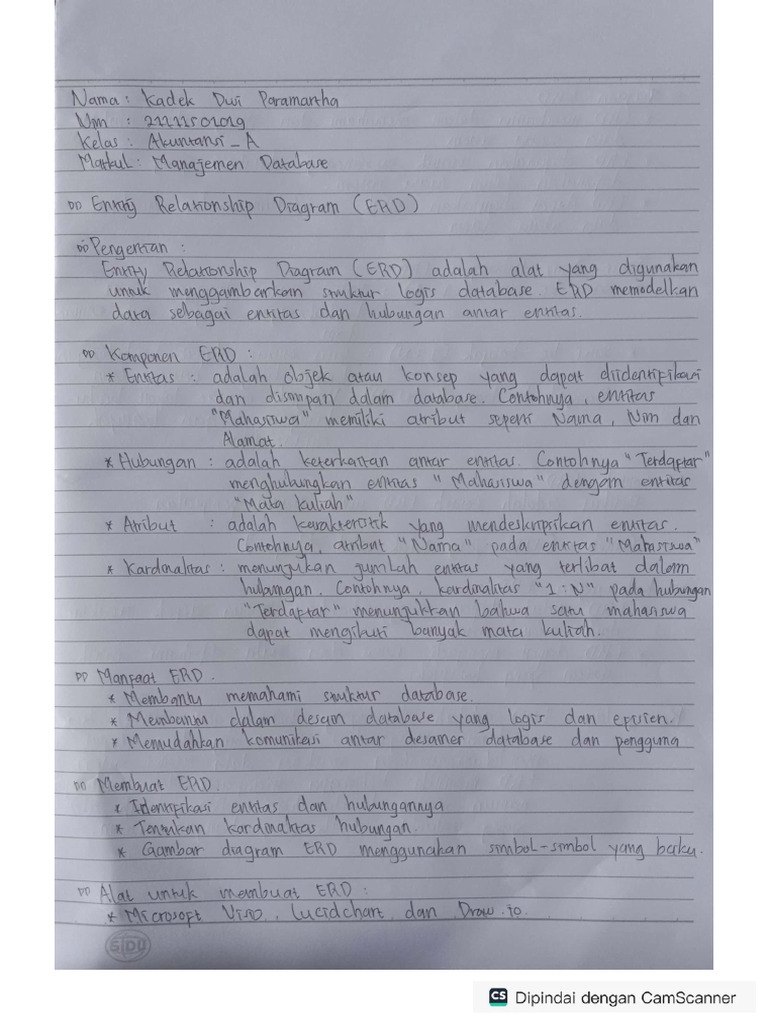 Nama : Kadek Dwi Paramartha
Nim :
Kelas : Akuntansi - A
Matkul : Manajemen Database
Entity Relationship Diagram (ERD)
Pengertian :
Entity Relationship Diagram (ERD) adalah alat yang digunakan
untuk menggambarkan struktur logis database. ERD memodelkan
data sebagai entitas dan hubungan antar entitas.
Komponen ERD :
* Entitas : adalah objek atau konsep yang dapat diidentifikasi
dan disimpan dalam database. Contohnya, entitas
"Mahasiswa" memiliki atribut seperti Nama, Nim dan
Alamat.
* Hubungan : adalah keterkaitan antar entitas. Contohnya "Terdaftar"
menghubungkan entitas "Mahasiswa" dengan entitas
"Mata kuliah"
* Atribut : adalah karakteristik yang mendeskripsikan entitas.
Contohnya, atribut "Nama" pada entitas "Mahasiswa"
* Kardinalitas : menunjukan jumlah entitas yang terlibat dalam
hubungan. Contohnya, kardinalitas "1:N" pada hubungan
"Terdaftar" menunjukkan bahwa satu mahasiswa
dapat mengikuti banyak mata kuliah.
Manfaat ERD.
* Membantu memahami struktur database.
* Membantu dalam desain database yang logis dan efisien.
* Memudahkan komunikasi antar desainer database dan pengguna
Membuat ERD.
* Identifikasi entitas dan hubungannya
* Tentukan kardinalitas hubungan.
* Gambar diagram ERD menggunakan simbol-simbol yang berku.
Alat untuk membuat ERD :
* Microsoft Visio, Lucidchart, dan Draw.io.
SIDU
CS Dipindai dengan CamScanner